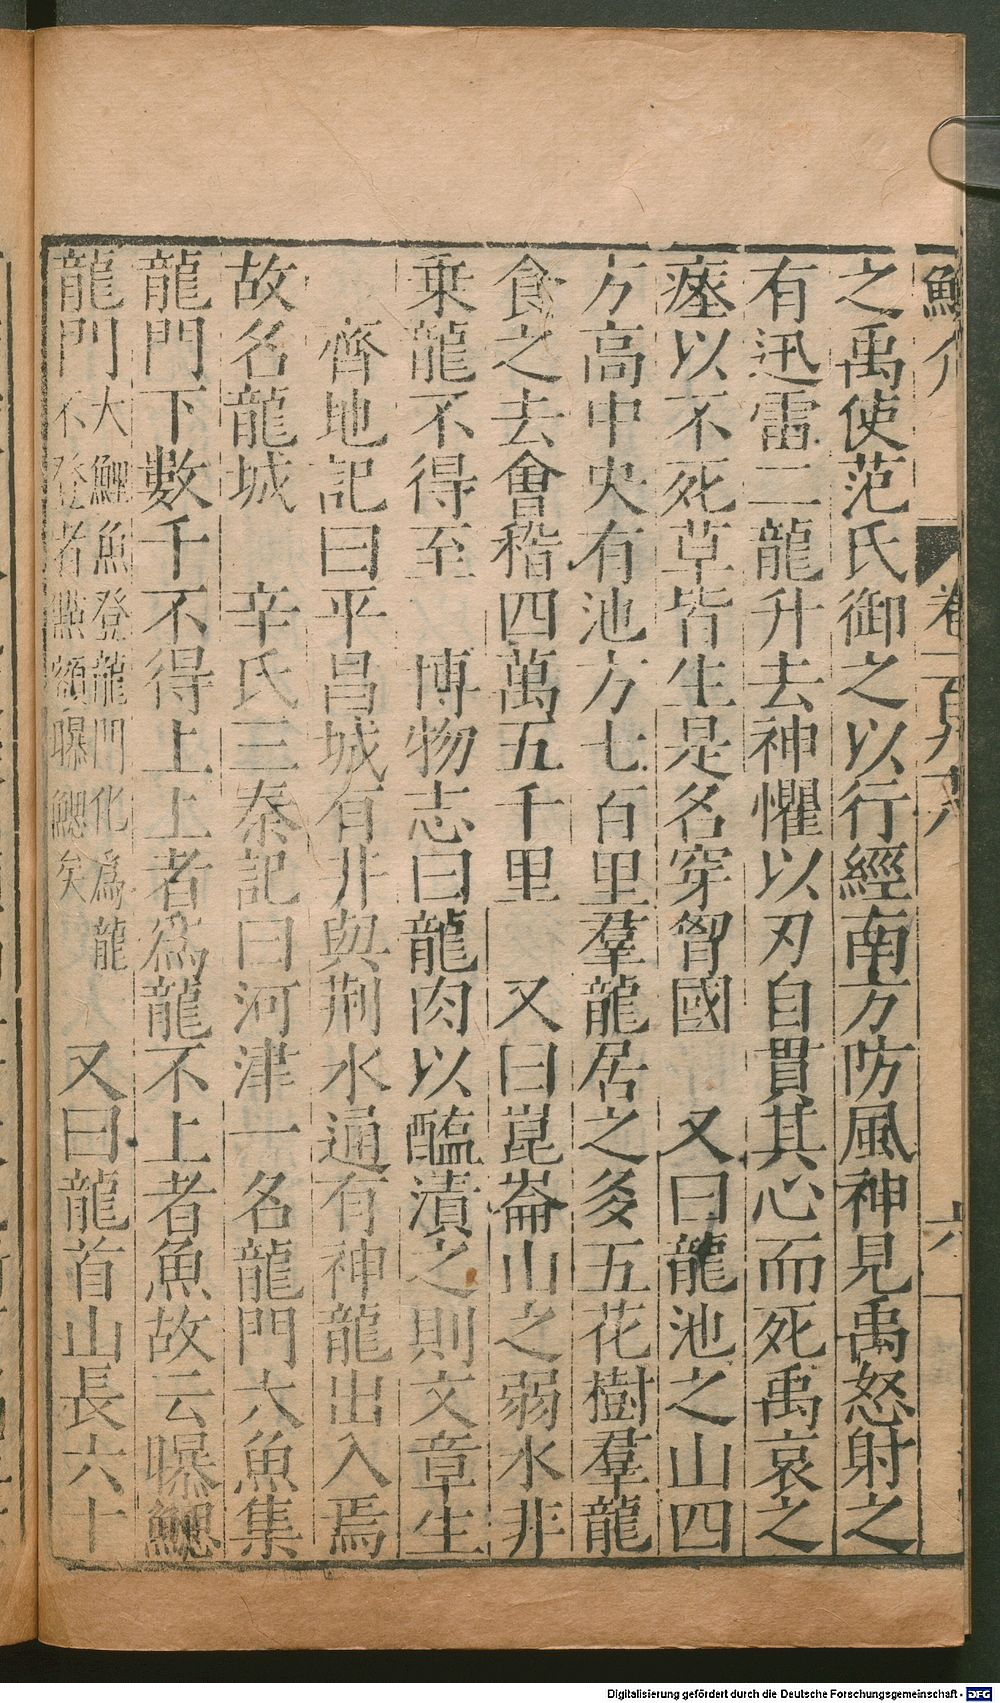 鱗介 卷一百九六 六
之禹使范氏御之以行經南方防風神見禹怒射之
有迅雷二龍升去神懼以刃自貫其心而死禹哀之
瘞以不死草皆生是名穿胷國 又曰龍池之山四
方高中央有池方七百里羣龍居之多五花樹羣龍
食之去會稽四萬五千里 又曰崑崙山之弱水非
乗龍不得至 博物志曰龍肉以醢漬之則文章生
齊地記曰平昌城有井與荆水通有神龍出入焉
故名龍城 辛氏三秦記曰河津一名龍門大魚集
龍門下數千不得上上者為龍不上者魚故云曝鰓
龍門
大鯉魚登龍門化為龍
不登者點額曝鰓矣
又曰龍首山長六十
Digitalisierung gefördert durch die Deutsche Forschungsgemeinschaft - DFG